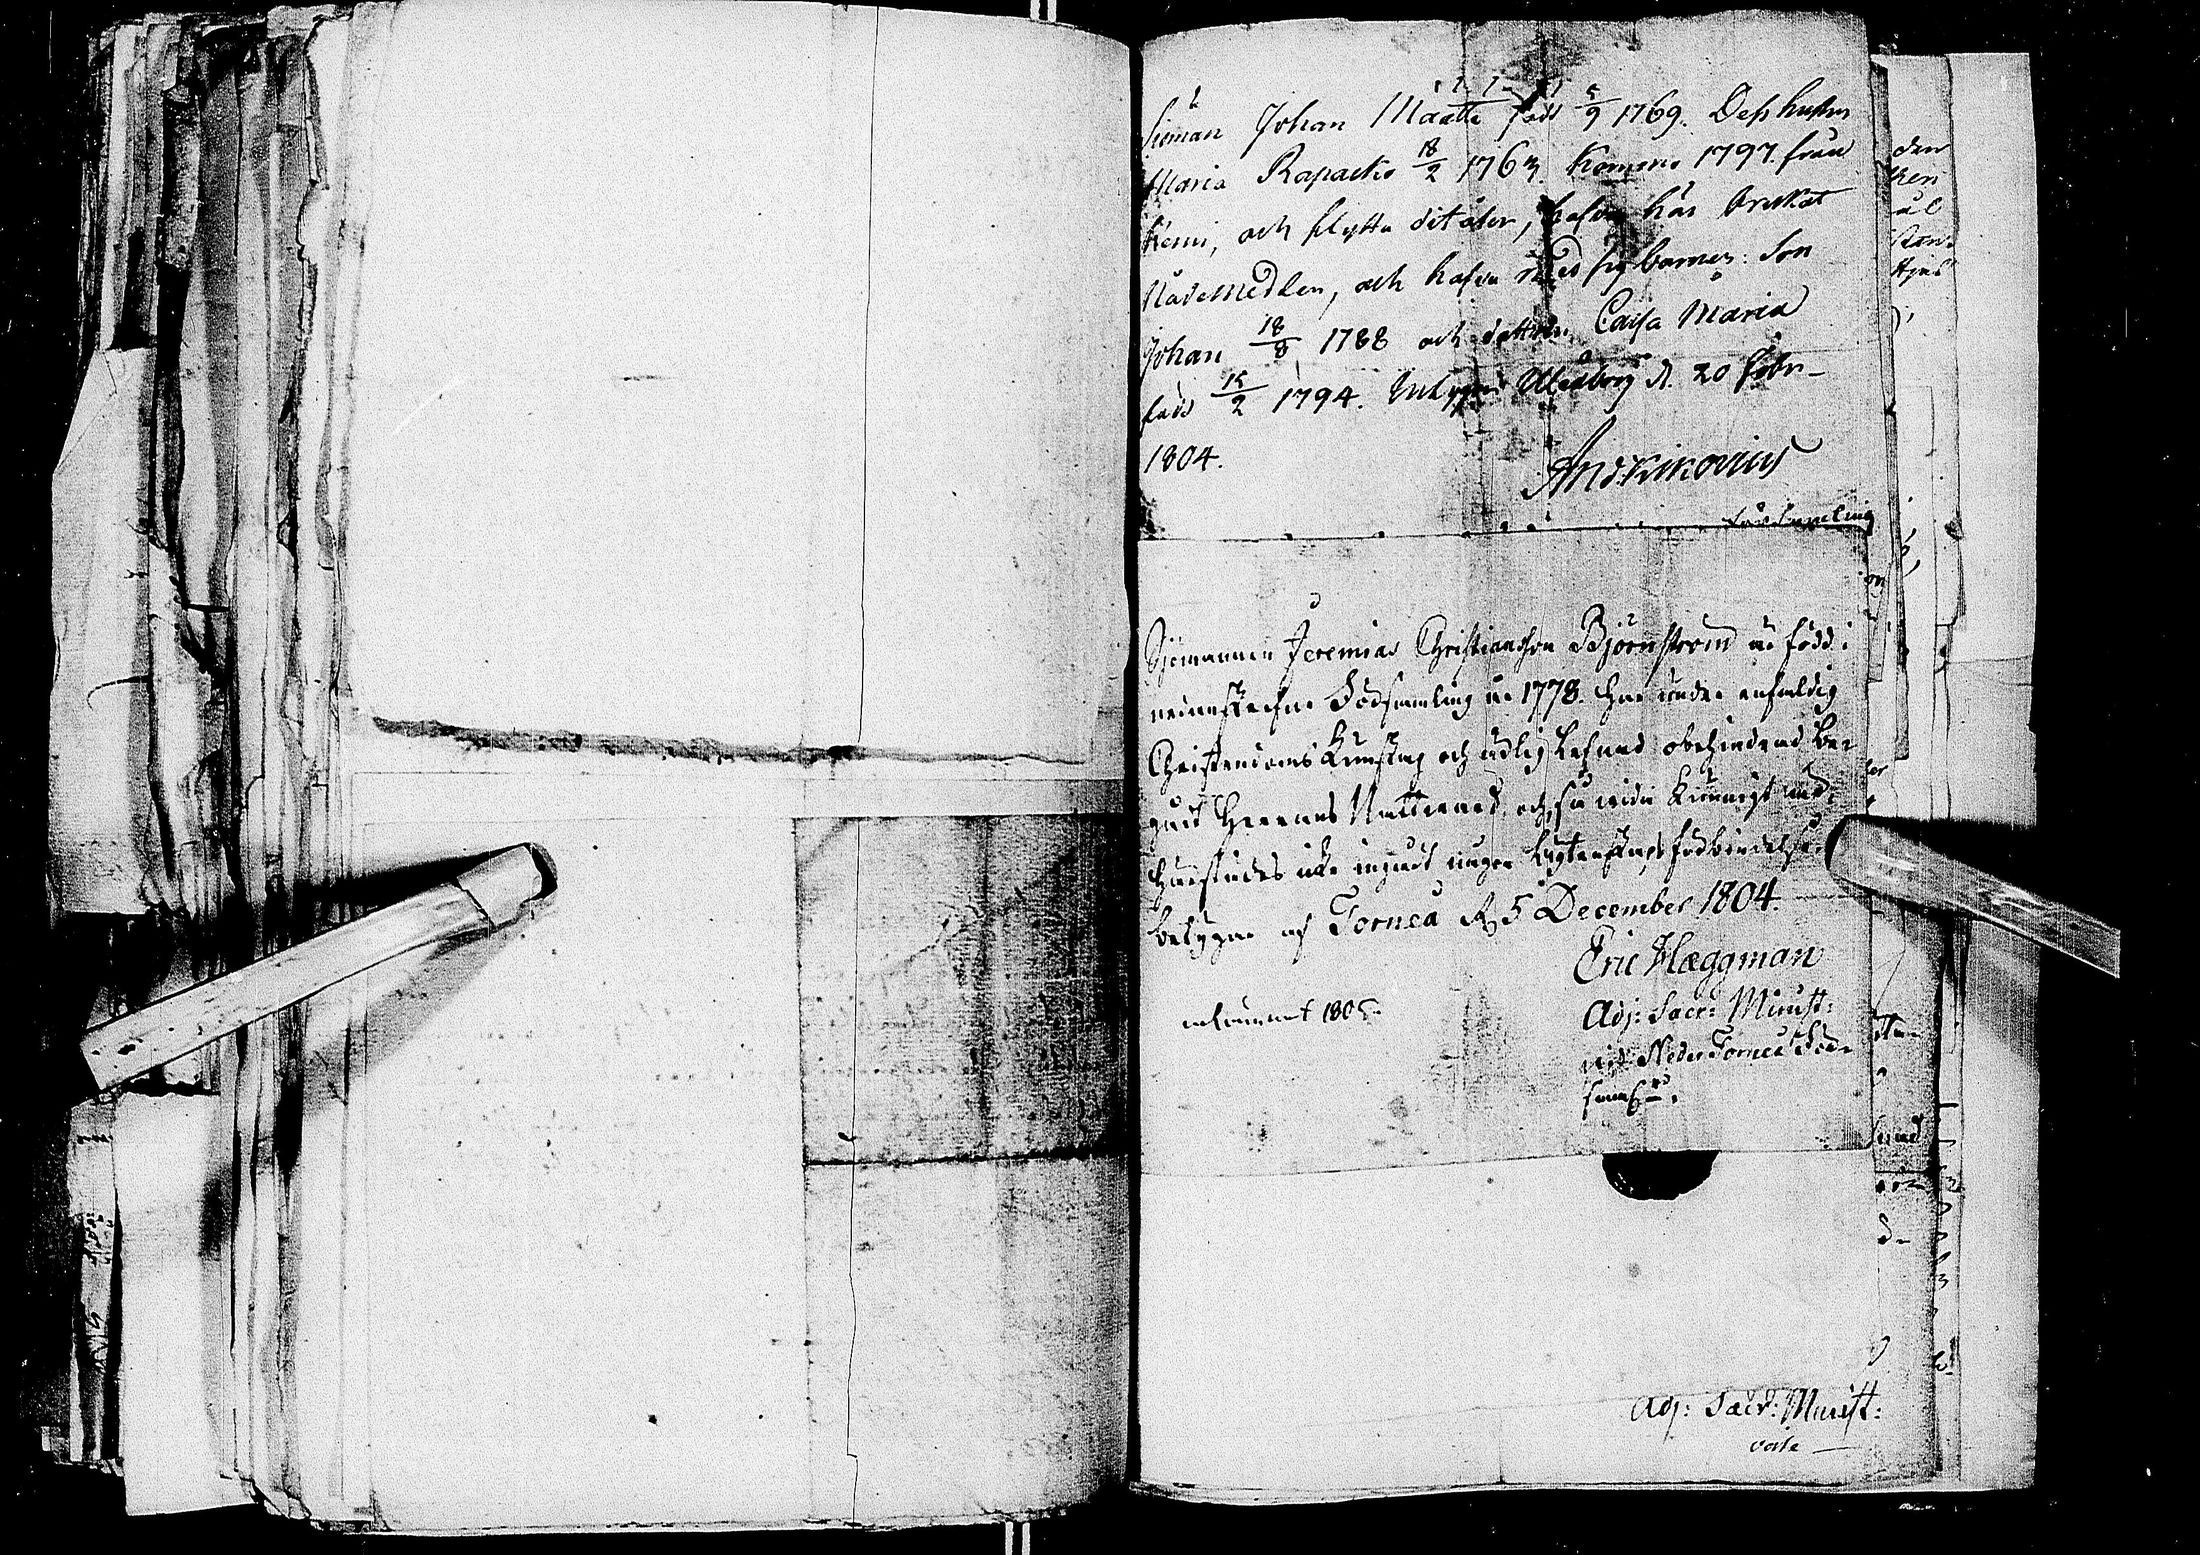 Johan Maatta född 5/9 1769. Dess hustru
Maria Rapactio 18/2 1763. Komne 1797 från
Kemi, och flytta dit åter, hafva här brukat
Nådemedlen, och hafva med sig barnen: Son
Johan 18/8 1788 och dottren Caisa Maria
född 15/2 1794. Uleåborg d. 20 Febr-
1804.
församling
Sjömannen Jeremias Christiansson Björnström är född i
nedanskrefne Församling år 1778. Har under enfaldig
Christendoms Kunskap och ärlig lefnad obehindrad be-
gådt Herrans Nattvard, och, så vida kunnigt är,
härstädes icke ingådt någon ägtenskaps förbindelse.
betygar af Torneå d. 5 December 1804.
Eric Hæggman
Adj: Sacr: Minist:
vid Neder Torneå För-
saml.
inkommit 1805.
Adj: Sacr: Minist: